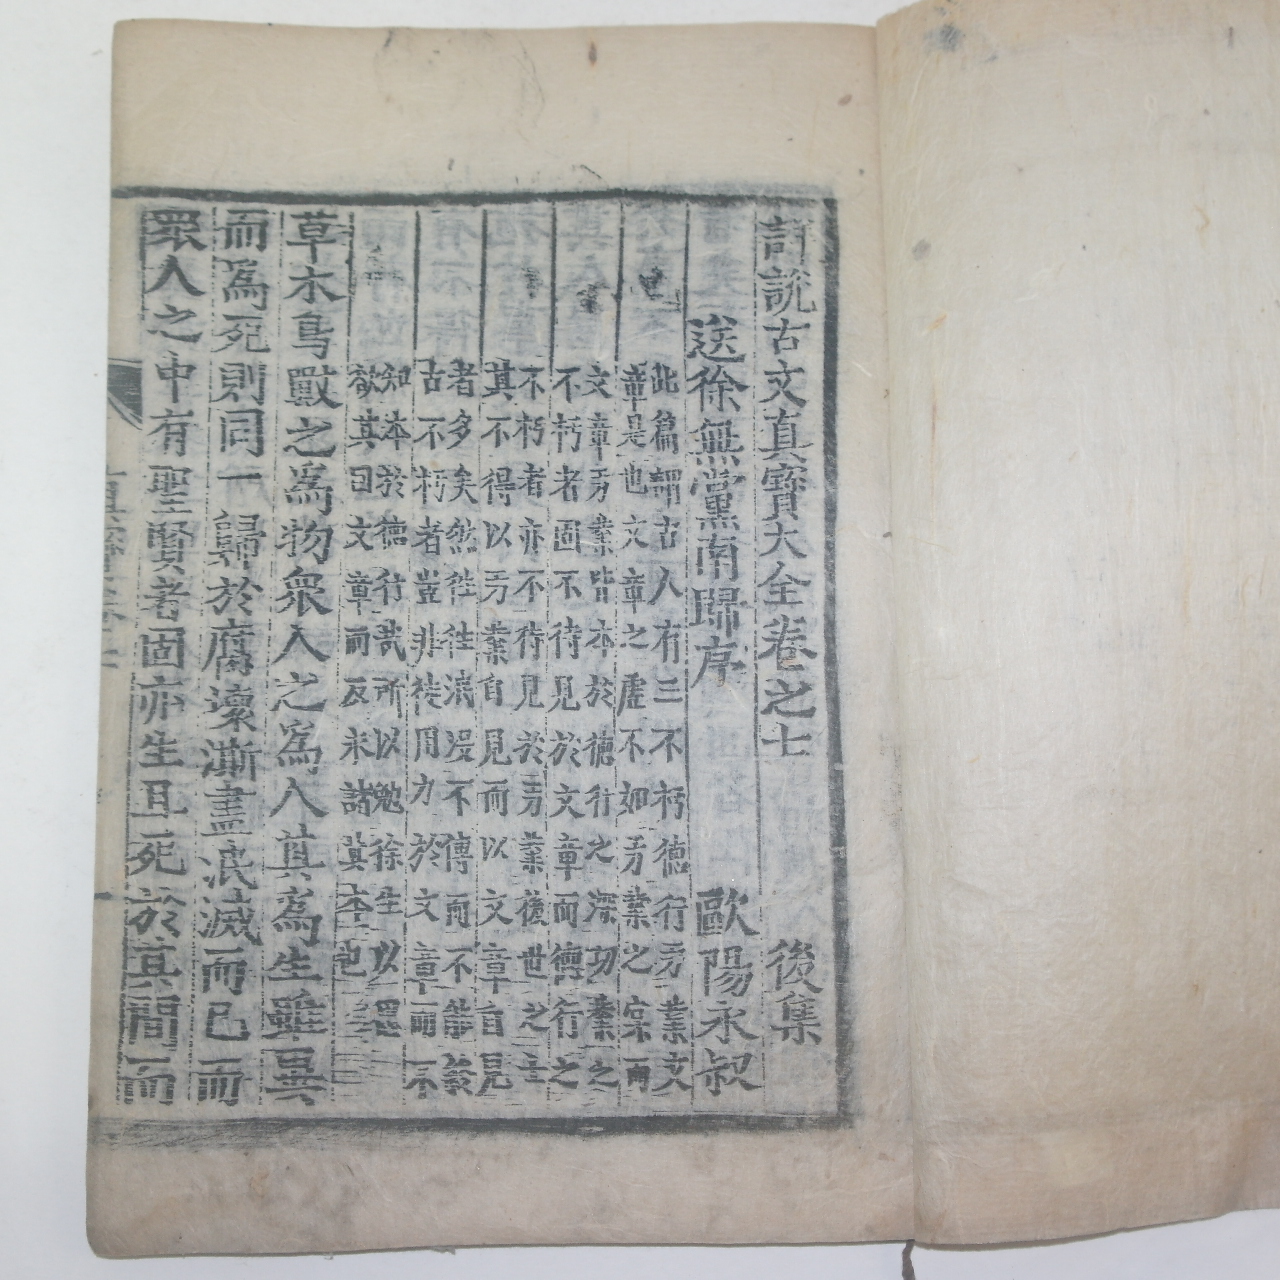 詳說古文真寶大全卷之七 後集
送徐無黨南歸序 歐陽永叔
此篇謂古人有三不朽德行㔟業文
章是也文章之虛不如㔟業之實而
文章㔟業皆本於德行之深功業之
不朽者固不待見於文章而德行之
不朽者亦不待見於㔟業後世之士
其不得以㔟業自見而以文章自見
者多矣然徃徃泯沒不傳而不能蘄
古不朽者豈非徒用力於文章而不
知本於德行哉所以勉徐生以思
欲其曰文章而反求諸其本也
草木鳥獸之爲物衆人之爲人其爲生雖異
而爲死則同一歸於腐壞澌盡泯滅而已而
衆人之中有聖賢者固亦生且死於其間而